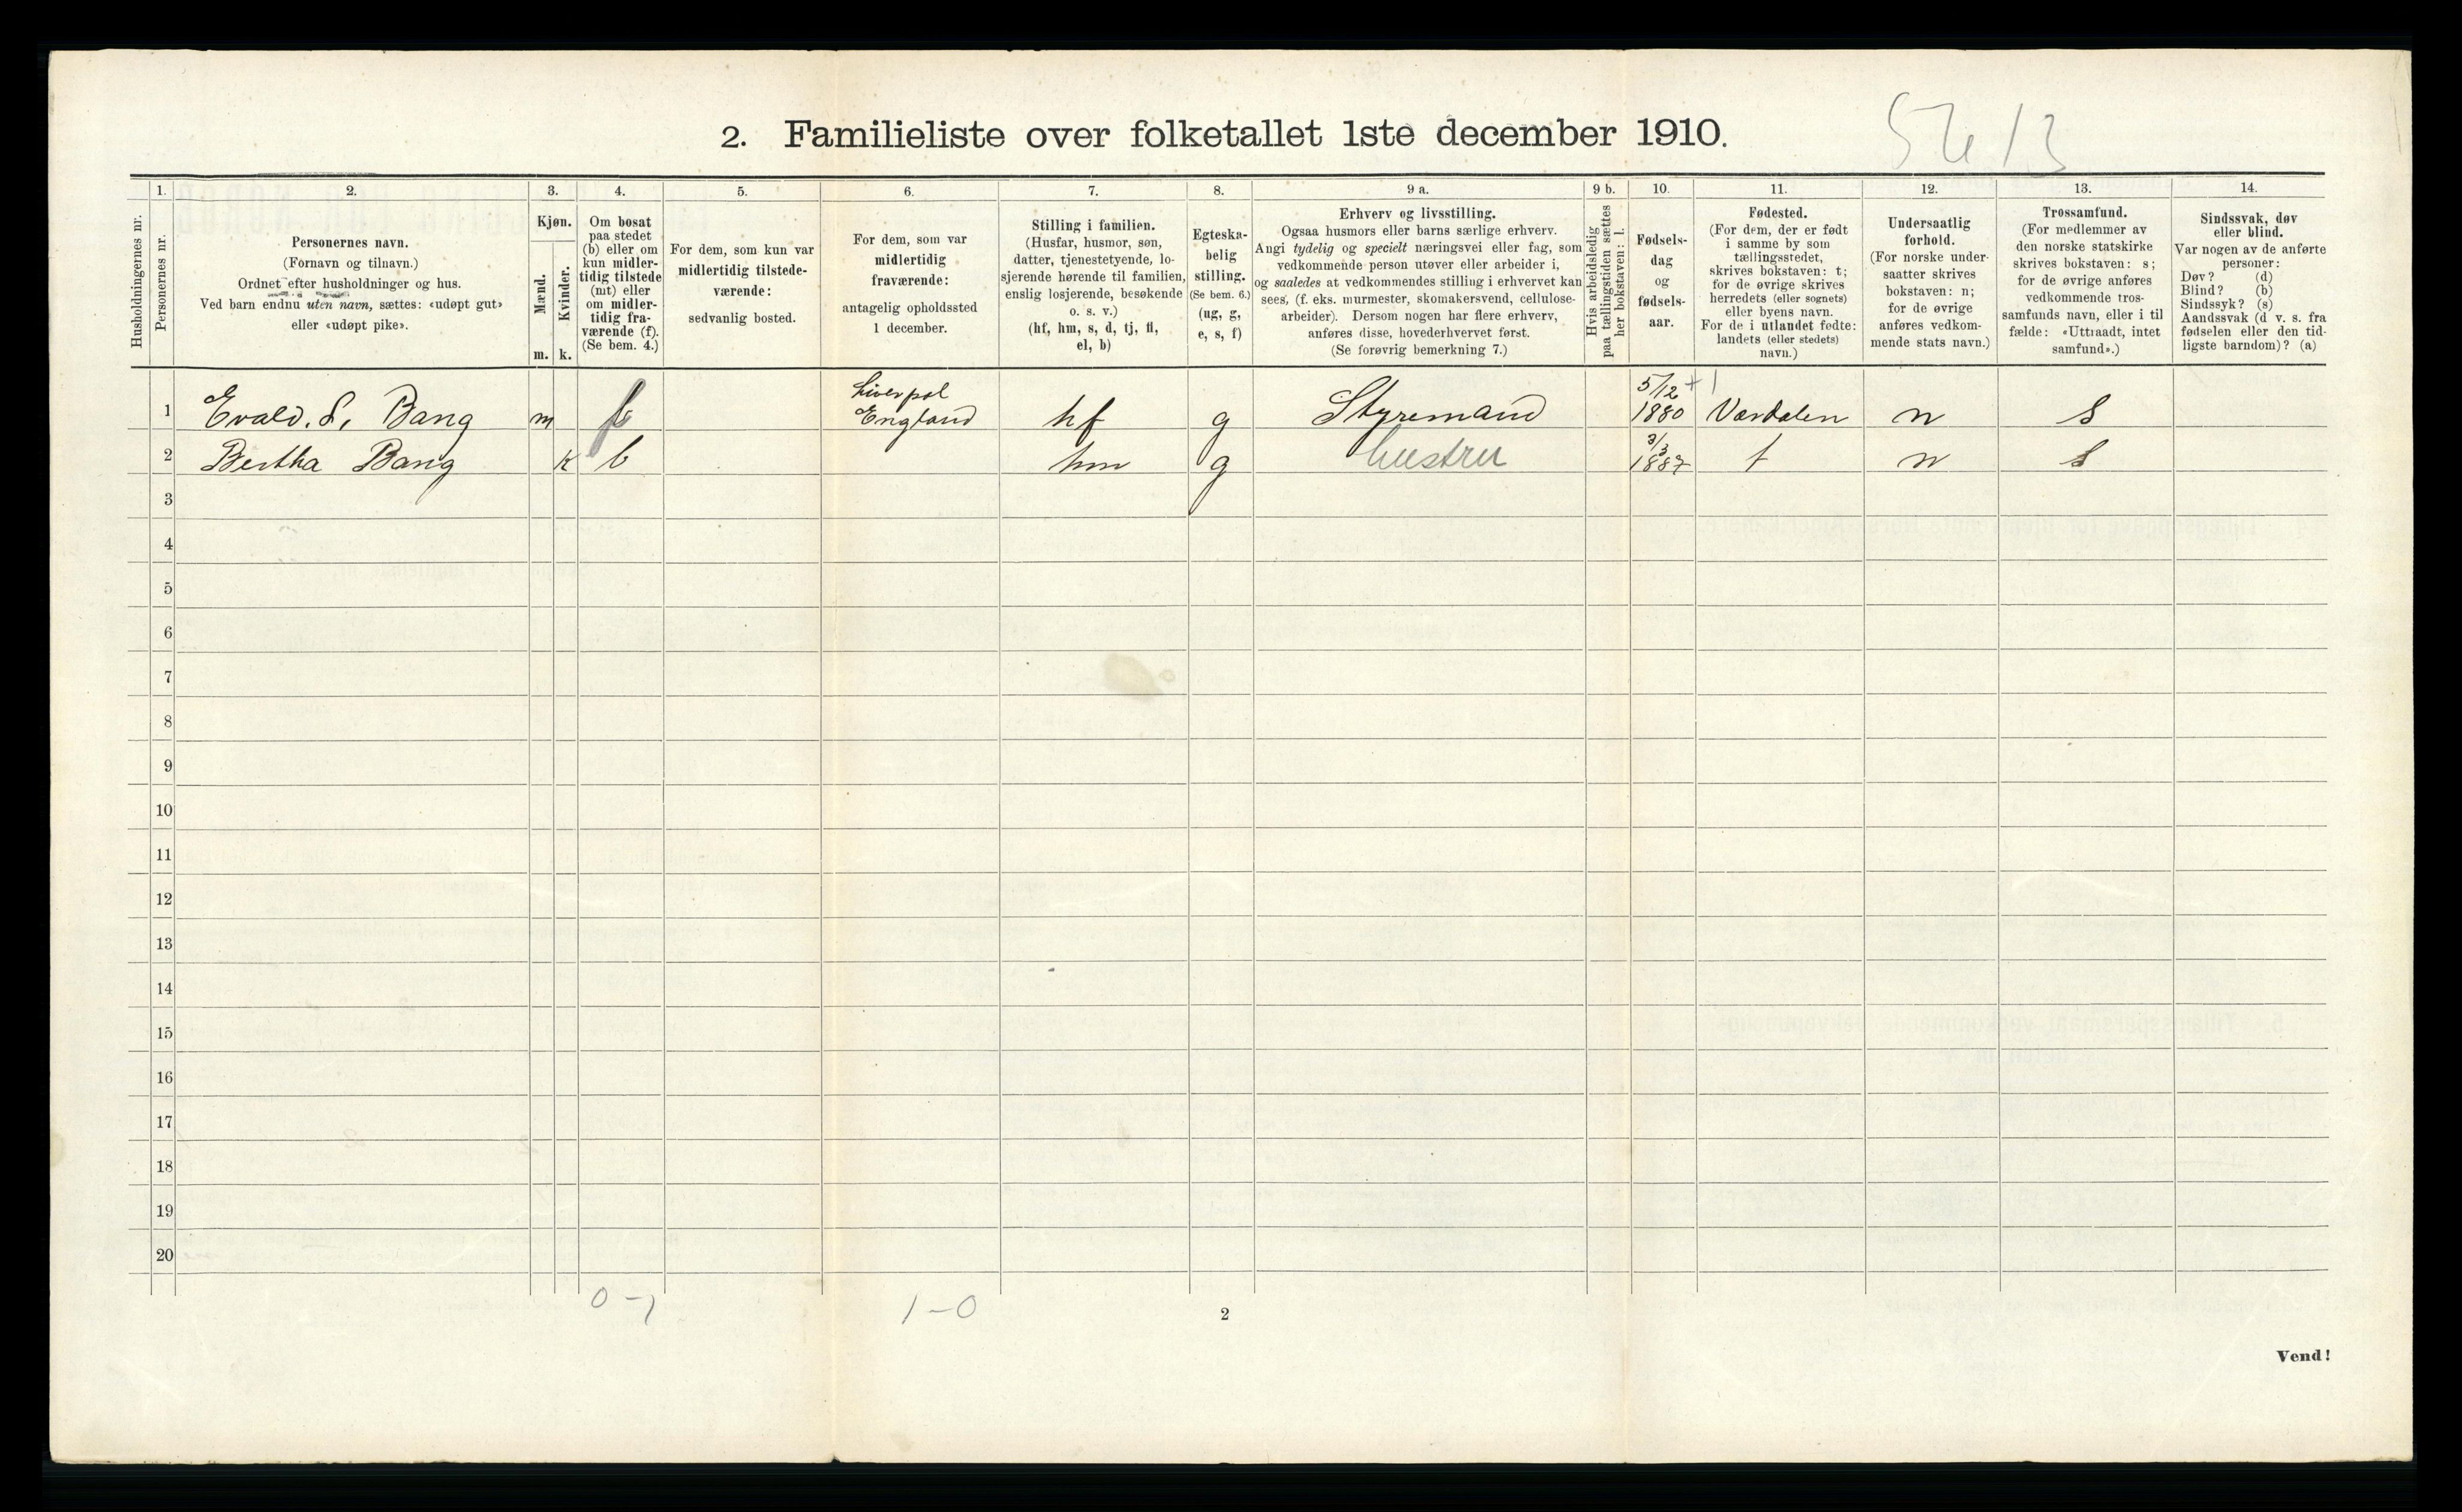 2. Familieliste over folketallet 1ste december 1910.
1. 2. 3. 4. 5. 6. 7. 8. 9 a. 9 b. 10. 11. 12. 13. 14.
Husholdningernes nr.
Personernes nr.
Personernes navn.
(Fornavn og tilnavn.)
Ordnet efter husholdninger og hus.
Ved barn endnu uten navn, sættes: «udøpt gut»
eller «udøpt pike».
Kjøn.
Mænd.
Kvinder.
m. k.
Om bosat
paa stedet
(b) eller om
kun midler-
tidig tilstede
(mt) eller
om midler-
tidig fra-
værende (f).
(Se bem. 4.)
For dem, som kun var
midlertidig tilstede-
værende:
sedvanlig bosted.
For dem, som var
midlertidig
fraværende:
antagelig opholdssted
1 december.
Stilling i familien.
(Husfar, husmor, søn,
datter, tjenestetyende, lo-
sjerende hørende til familien,
enslig losjerende, besøkende
o. s. v.)
(hf, hm, s, d, tj, fl,
el, b)
Egteska-
belig
stilling.
(Se bem. 6.)
(ug, g,
e, s, f)
Erhverv og livsstilling.
Ogsaa husmors eller barns særlige erhverv.
Angi tydelig og specielt næringsvei eller fag, som
vedkommende person utøver eller arbeider i,
og saaledes at vedkommendes stilling i erhvervet kan
sees, (f. eks. murmester, skomakersvend, cellulose-
arbeider). Dersom nogen har flere erhverv,
anføres disse, hovederhvervet først.
(Se forøvrig bemerkning 7.)
Hvis arbeidsledig
paa tællingstiden sættes
her bokstaven: l.
Fødsels-
dag
og
fødsels-
aar.
Fødested.
(For dem, der er født
i samme by som
tællingsstedet,
skrives bokstaven: t;
for de øvrige skrives
herredets (eller sognets)
eller byens navn.
For de i utlandet fødte:
landets (eller stedets)
navn.)
Undersaatlig
forhold.
(For norske under-
saatter skrives
bokstaven: n;
for de øvrige
anføres vedkom-
mende stats navn.)
Trossamfund.
(For medlemmer av
den norske statskirke
skrives bokstaven: s;
for de øvrige anføres
vedkommende tros-
samfunds navn, eller i til
fælde: «Uttraadt, intet
samfund».)
Sindssvak, døv
eller blind.
Var nogen av de anførte
personer:
Døv? (d)
Blind? (b)
Sindssyk? (s)
Aandssvak (d v. s. fra
fødselen eller den tid-
ligste barndom)? (a)
1 Evald. S. Bang m f Liverpol England hf g Styremand 5/12 1880 Værdalen n s
2 Bertha Bang k b hm g hustru 3/3 1887 t n s
3
4
5
6
7
8
9
10
11
12
13
14
15
16
17
18
19
20
0-1 1-0
2
Vend!